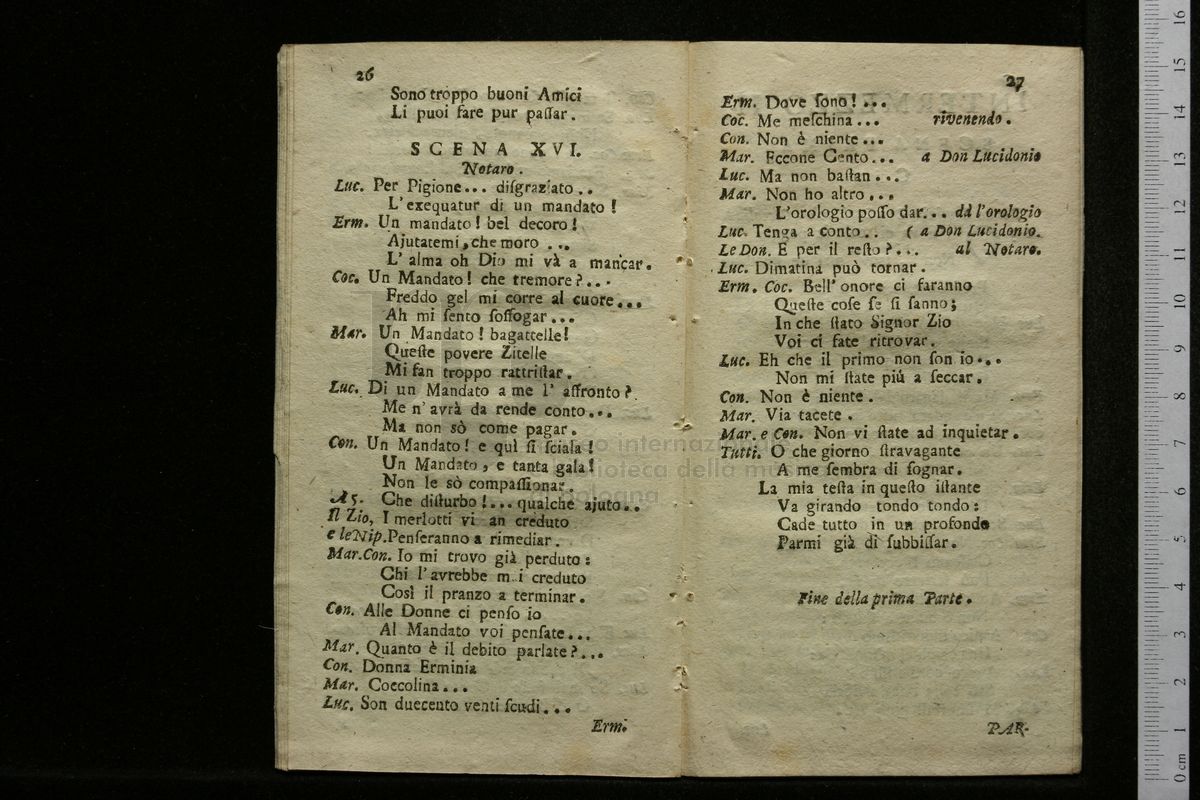 26
Sono troppo buoni Amici
Li puoi fare pur paſſar.
SCENA XVI.
Notaro.
Luc. Per Pigione... diſgraziato..
L'exequatur di un mandato!
Erm. Un mandato! bel decoro!
Ajutatemi, che moro ...
L'alma oh Dio mi và a mancar.
Coc. Un Mandato! che tremore?...
Freddo gel mi corre al cuore...
Ah mi ſento ſoffogar...
Mar. Un Mandato! bagattelle!
Queſte povere Zitelle
Mi fan troppo rattriſtar.
Luc. Di un Mandato a me l'affronto?
Me n'avrà da rende conto...
Ma non sò come pagar.
Con. Un Mandato! e quì ſi ſciala!
Un Mandato, e tanta gala!
Non le sò compaſſionar.
A 5. Che diſturbo!... qualche ajuto..
Il Zio, I merlotti vi an creduto
e le Nip. Penſeranno a rimediar.
Mar. Con. Io mi trovo già perduto:
Chi l'avrebbe mai creduto
Così il pranzo a terminar.
Con. Alle Donne ci penſo io
Al Mandato voi penſate...
Mar. Quanto è il debito parlate?...
Con. Donna Erminia
Mar. Coccolina...
Luc. Son duecento venti ſcudi...
Erm.
27
Erm. Dove ſono!...
Coc. Me meſchina... rivenendo.
Con. Non è niente...
Mar. Eccone Cento... a Don Lucidonio
Luc. Ma non baſtan...
Mar. Non ho altro...
L'orologio poſſo dar... dà l'orologio
Luc. Tenga a conto.. ( a Don Lucidonio.
Le Don. E per il reſto?... al Notaro.
Luc. Dimatina può tornar.
Erm. Coc. Bell'onore ci faranno
Queſte coſe ſe ſi ſanno;
In che ſtato Signor Zio
Voi ci fate ritrovar.
Luc. Eh che il primo non ſon io...
Non mi ſtate più a ſeccar.
Con. Non è niente.
Mar. Via tacete.
Mar. e Con. Non vi ſtate ad inquietar.
Tutti. O che giorno ſtravagante
A me ſembra di ſognar.
La mia teſta in queſto iſtante
Va girando tondo tondo:
Cade tutto in un profondo
Parmi già di ſubbiſſar.
Fine della prima Parte.
PAR-
museo internazionale
biblioteca della musica
bologna
0 cm 1 2 3 4 5 6 7 8 9 10 11 12 13 14 15 16